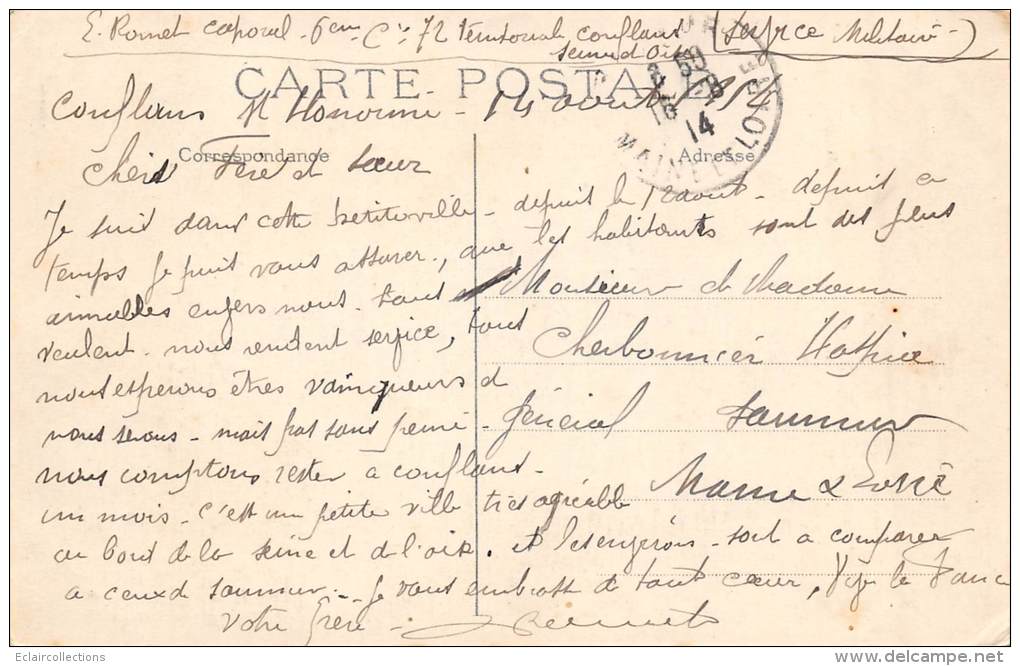 E. Romet caporal 6em Cie 72 territorial conflans (Serfice Militaire)
Seine d'Oise
CARTE POSTALE
18
14
MAINE ET LOIRE
Conflans St Honorine - 14 aout
Correspondance
Adresse
Chers Frere et Sœur
Je suis dans cette petite ville - depuit le 12 aout - depuit ce
temps je puit vous assurer, que les habitants sont des plus
aimables enfers nous. tous
veulent nous rendent serfice, tous
nous esperons êtres vainqueurs et
nous serons - mais pas sans peine -
nous comptons rester a conflans -
un mois - c'est un petite ville très agréable
au bord de la seine et de l'oise. et les enferons - sont a comparer
a ceux de saumur - Je vous embrasse de tout cœur, Vife la France
Votre Frere - Romet
Monsieur et Madame
Cherbonnier Hospice
Général Saumur
Maine & Loire
Eclaircollections